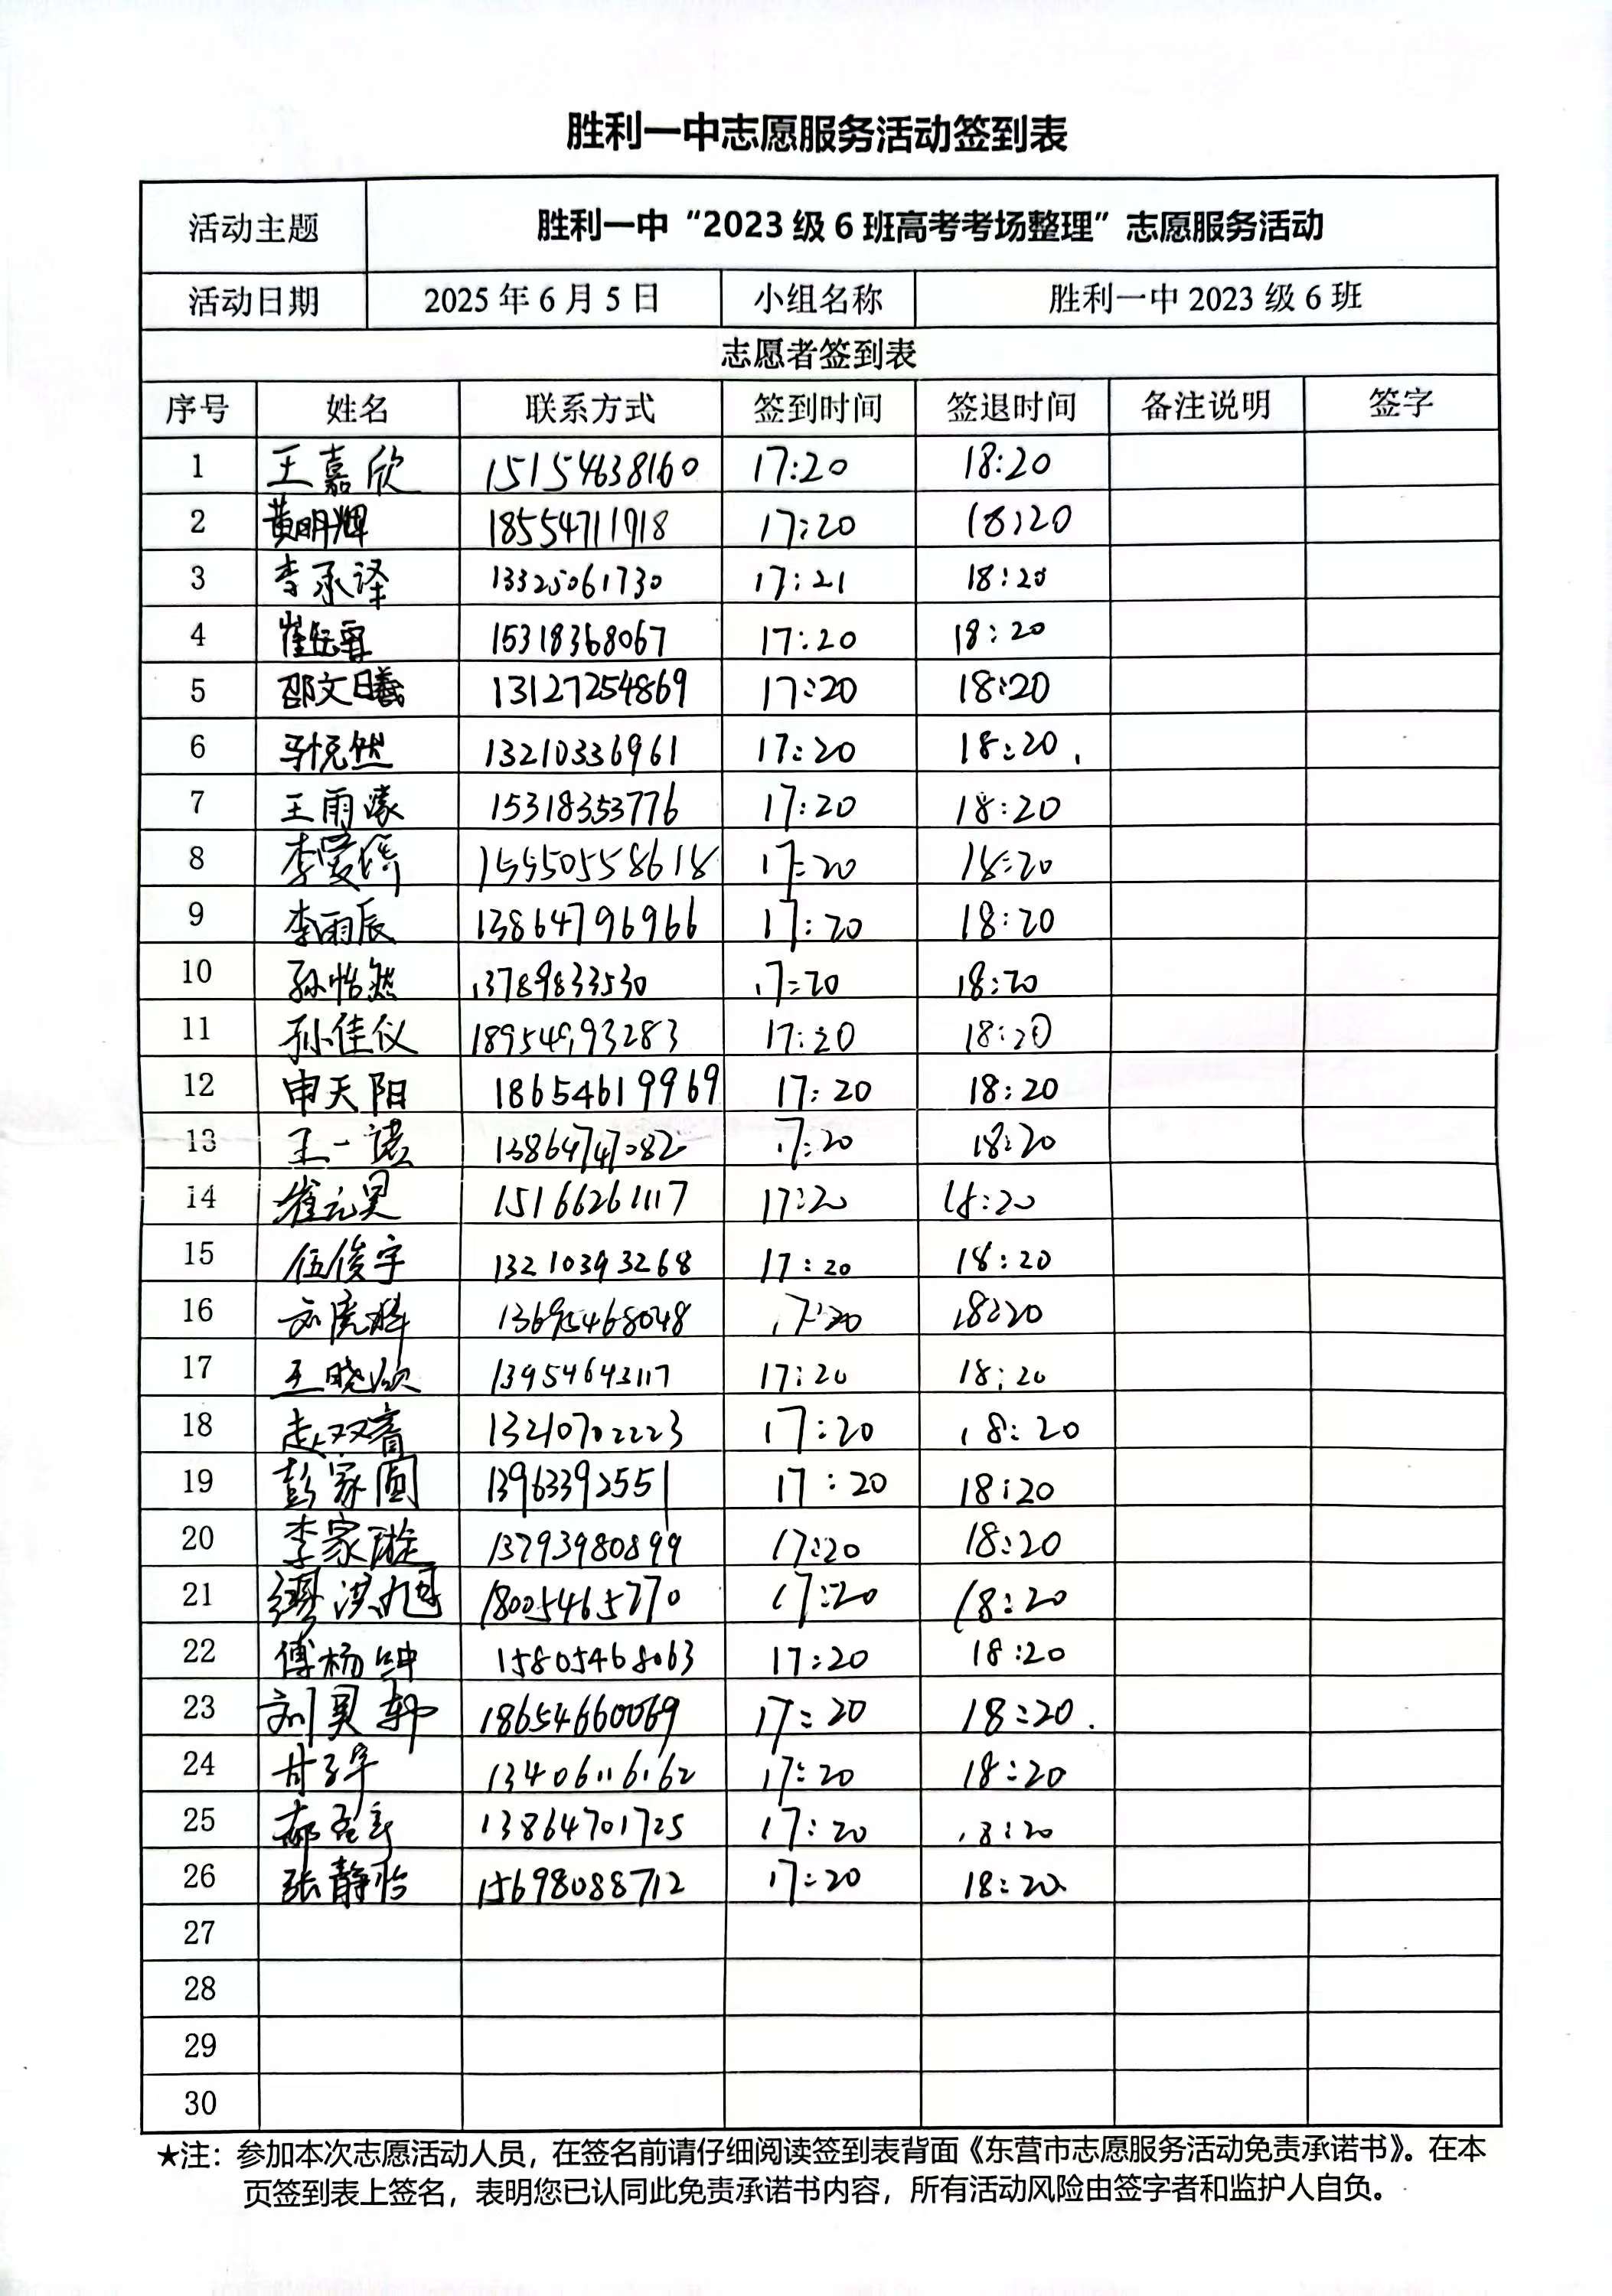 胜利一中志愿服务活动签到表
活动主题 胜利一中“2023级6班高考考场整理”志愿服务活动
活动日期 2025年6月5日 小组名称 胜利一中2023级6班
志愿者签到表
序号 姓名 联系方式 签到时间 签退时间 备注说明 签字
1 王嘉欣 15154638160 17:20 18:20
2 黄明辉 18554711918 17:20 18:20
3 李承泽 13325061730 17:21 18:20
4 15318368067 17:20 18:20
5 邵文曦 13127254869 17:20 18:20
6 马悦然 13210336961 17:20 18:20
7 王雨濛 15318353776 17:20 18:20
8 17:20 18:20
9 李雨辰 13864796966 17:20 18:20
10 孙怡然 13789833530 17:20 18:20
11 孙佳仪 18954693283 17:20 18:20
12 申天阳 18654619969 17:20 18:20
13 王一诺 17:20 18:20
14 崔元昊 15166261117 17:20 18:20
15 伍俊宇 13210393268 17:20 18:20
16 17:20 18:20
17 王晓欣 13954643117 17:20 18:20
18 赵双音 13210702223 17:20 18:20
19 彭家圆 13963392551 17:20 18:20
20 李家璇 13793980899 17:20 18:20
21 18005465770 17:20 18:20
22 傅杨 15805468063 17:20 18:20
23 刘昊轩 18654660069 17:20 18:20
24 甘子宇 13406116162 17:20 18:20
25 13864701725 17:20 18:20
26 张静怡 15698088712 17:20 18:20
27
28
29
30
★注：参加本次志愿活动人员，在签名前请仔细阅读签到表背面《东营市志愿服务活动免责承诺书》。在本
页签到表上签名，表明您已认同此免责承诺书内容，所有活动风险由签字者和监护人自负。